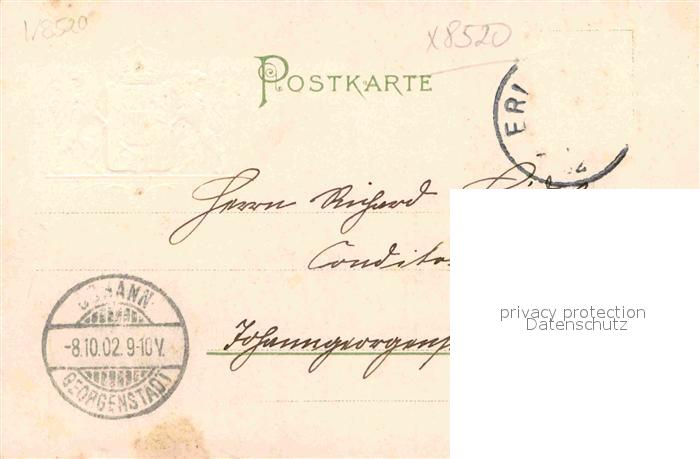 V8520
X8520
POSTKARTE
ER
Herrn Richard
Condito
Johanngeorgens
JOHANN
-8.10.02. 9-10V.
GEORGENSTADT
privacy protection
Datenschutz